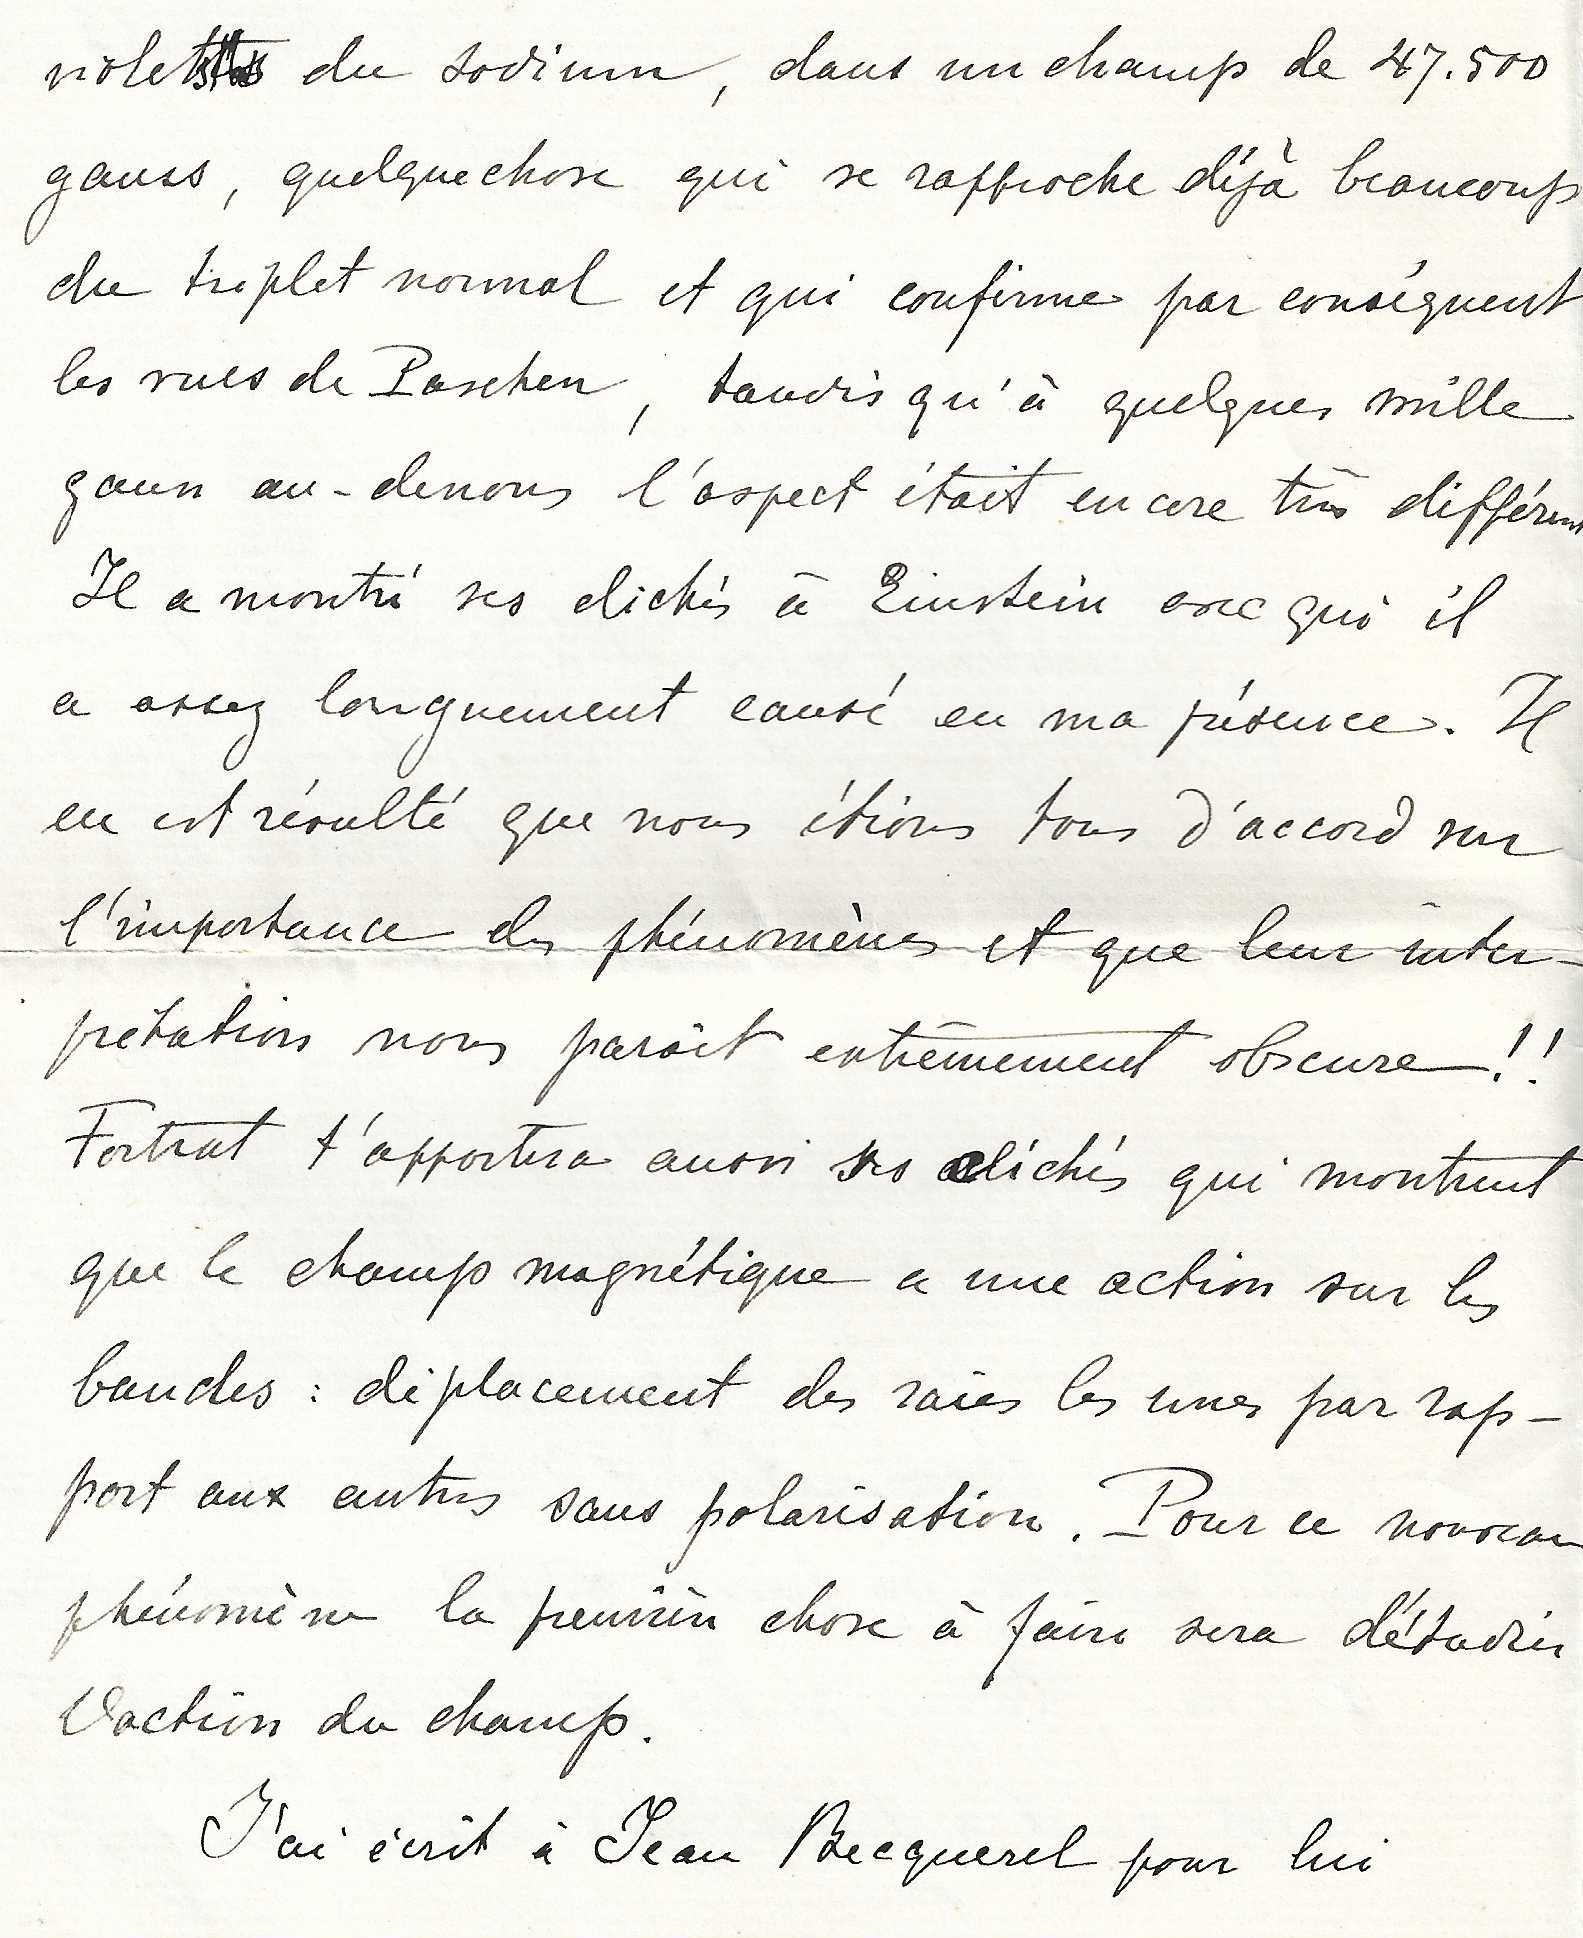 violets du sodium, dans un champ de 47.500
gauss, quelque chose qui se rapproche déjà beaucoup
du triplet normal et qui confirme par conséquent
les vues de Paschen, tandis qu'à quelques mille
gauss au-dessous l'aspect était encore très différent
Il a montré ses clichés à Einstein avec qui il
a assez longuement causé en ma présence. Il
en est résulté que nous étions tous d'accord sur
l'importance des phénomènes et que leur inter-
prétation nous paraît extrêmement obscure!!
Fortrat t'apportera aussi ses clichés qui montrent
que le champ magnétique a une action sur les
bandes : déplacement des raies les unes par rap-
port aux autres sans polarisation. Pour ce nouveau
phénomène la première chose à faire sera d'étudier
l'action du champ.
J'ai écrit à Jean Becquerel pour lui